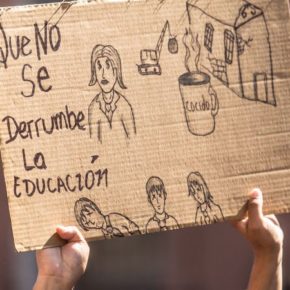 Que No
Se
Derrumbe
La
EDUCACIÓN
COCIDO